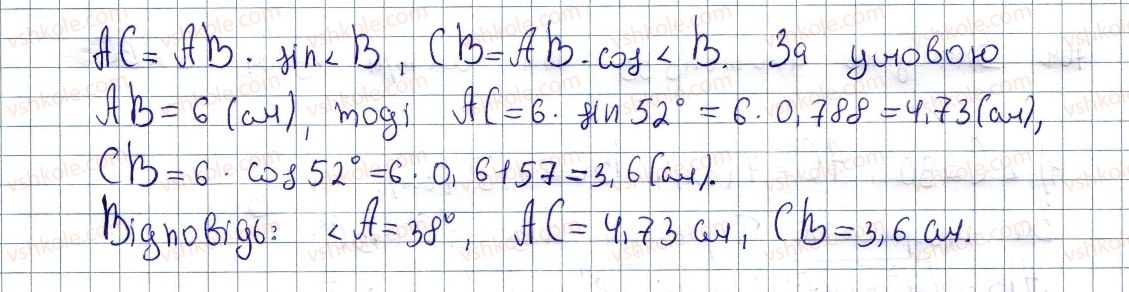 AC = AB · sin < B, CB = AB · cos < B. За умовою
AB = 6 (см), тоді AC = 6 · sin 52° = 6 · 0,788 = 4,73 (см),
CB = 6 · cos 52° = 6 · 0,6157 = 3,6 (см).
Відповідь: < A = 38°, AC = 4,73 см, CB = 3,6 см.